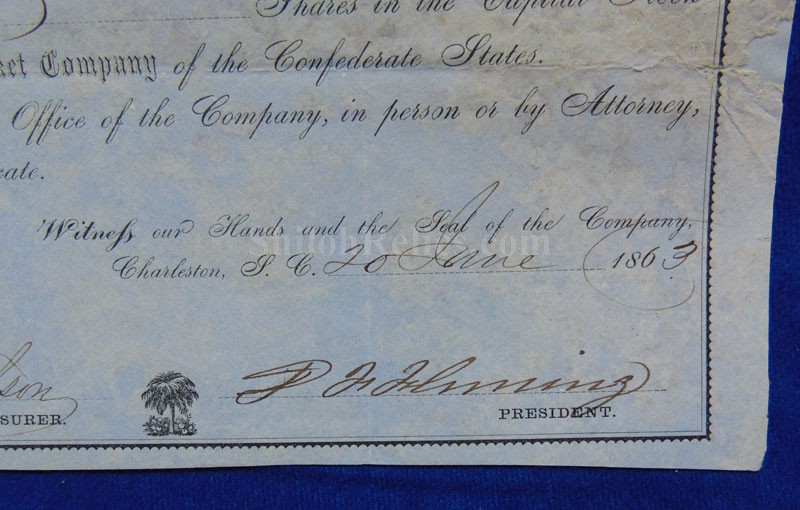 Shares in the Capital Stock
ket Company of the Confederate States.
Office of the Company, in person or by Attorney,
cate.
Witness our Hands and the Seal of the Company,
ShilohRelics.com
Charleston, S. C. 20 June 1863
son
SURER.
Fleming
PRESIDENT.